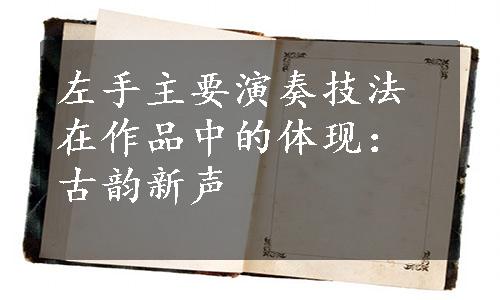 左手主要演奏技法
在作品中的体现：
古韵新声